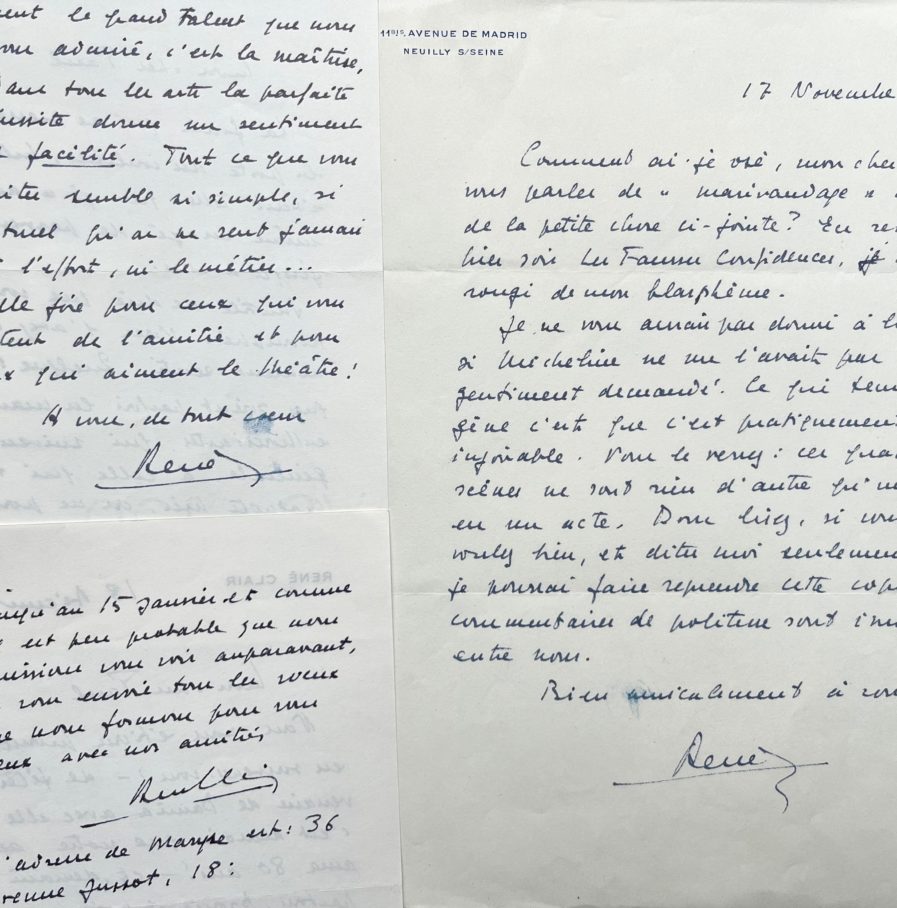 le grand Talent que nous
admiré, c'est la maîtrise,
Dans tous les arts la parfaite
réussite donne un sentiment
facilité. Tout ce que vous
semble si simple, si
naturel qu'on ne sent jamais
l'effort, ni le métier...
joie pour ceux qui vous
de l'amitié et pour
qui aiment le théâtre!
A vous, de tout coeur
René
RENÉ CLAIR
jusqu'au 15 Janvier et comme
est peu probable que nous
puissions vous voir auparavant,
vous envoie tous les voeux
nous formons pour vous
avec nos amitiés
adresse de Maryse est: 36
Jussot, 18:
11BIS, AVENUE DE MADRID
NEUILLY S/SEINE
17 Novembre
Comment ai-je osé, mon cher
vous parler de « marivaudage »
de la petite chose ci-jointe? En
hier soir Les Fausses Confidences, je
rougi de mon blasphème.
Je ne vous aurais pas donné à
si Micheline ne me l'avait pas
gentiment demandé. Ce qui
gêne c'est que c'est pratiquement
injouable. Vous le verrez: ces
scènes ne sont rien d'autre qu'
en un acte. Donc lisez, si vous
voulez bien, et dites moi seulement
je pourrai faire reprendre cette
commentaires de politesse sont
entre nous.
Bien amicalement à vous
René